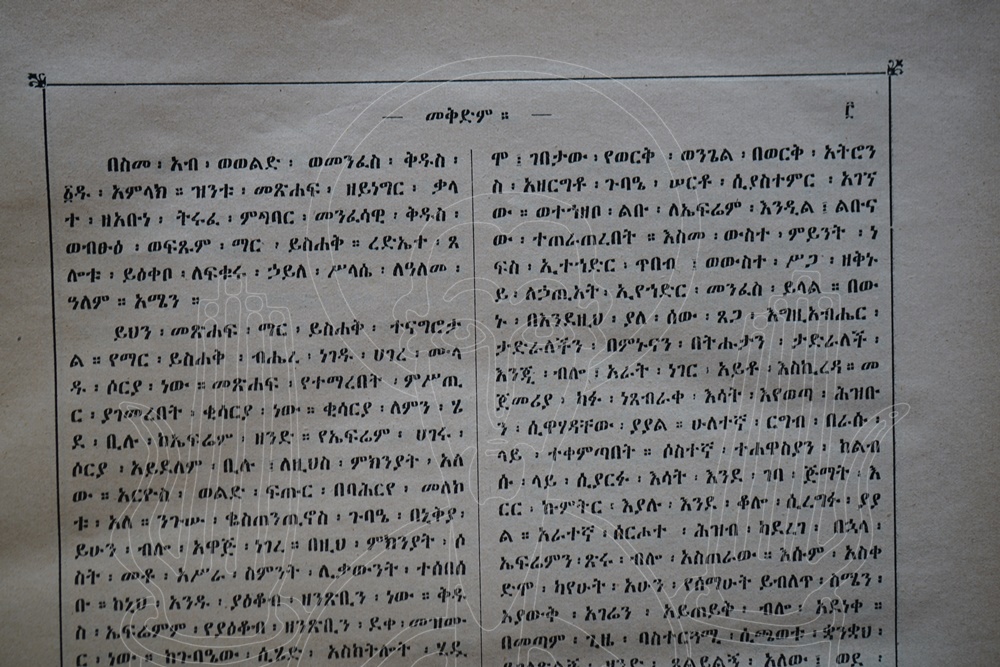 — መቅድም ። —
፫
በስመ ፡ አብ ፡ ወወልድ ፡ ወመንፈስ ፡ ቅዱስ ፡
፩ዱ ፡ አምላክ ። ዝንቱ ፡ መጽሐፍ ፡ ዘይነግር ፡ ቃላ
ት ፡ ዘአቡነ ፡ ትሩፈ ፡ ምግባር ፡ መንፈሳዊ ፡ ቅዱስ ፡
ወብፁዕ ፡ ወፍጹም ፡ ማር ፡ ይስሐቅ ። ረድኤተ ፡ ጸ
ሎቱ ፡ ይዕቀቦ ፡ ለፍቁሩ ፡ ኃይለ ፡ ሥላሴ ፡ ለዓለመ ፡
ዓለም ። አሜን ።
ይህን ፡ መጽሐፍ ፡ ማር ፡ ይስሐቅ ፡ ተናግሮታ
ል ። የማር ፡ ይስሐቅ ፡ ብሔረ ፡ ነገዱ ፡ ሀገረ ፡ ሙላ
ዱ ፡ ሶርያ ፡ ነው ። መጽሐፍ ፡ የተማረበት ፡ ምሥጢ
ር ፡ ያገመረበት ፡ ቂሳርያ ፡ ነው ። ቂሳርያ ፡ ለምን ፡ ሄ
ደ ፡ ቢሉ ፡ ከኤፍሬም ፡ ዘንድ ። የኤፍሬም ፡ ሀገሩ ፡
ሶርያ ፡ አይደለም ፡ ቢሉ ፤ ለዚህስ ፡ ምክንያት ፡ አለ
ው ። አርዮስ ፡ ወልድ ፡ ፍጡር ፡ በባሕርየ ፡ መለኮ
ቱ ፡ አለ ። ንጉሡ ፡ ቈስጠንጢኖስ ፡ ጉባዔ ፡ በኒቅያ ፡
ይሁን ፡ ብሎ ፡ አዋጅ ፡ ነገረ ። በዚህ ፡ ምክንያት ፡ ሶ
ስት ፡ መቶ ፡ አሥራ ፡ ስምንት ፡ ሊቃውንት ፡ ተሰበሰ
ቡ ። ከኒህ ፡ አንዱ ፡ ያዕቆብ ፡ ዘንጽቢን ፡ ነው ። ቅዱ
ስ ፡ ኤፍሬምም ፡ የያዕቆብ ፡ ዘንጽቢን ፡ ደቀ ፡ መዝሙ
ር ፡ ነው ። ከጉባዔው ፡ ሲሄድ ፡ አስከትሎት ፡ ሄዷ
ሞ ፤ ገበታው ፡ የወርቅ ፡ ወንጌል ፡ በወርቅ ፡ አትሮን
ስ ፡ አዘርግቶ ፡ ጉባዔ ፡ ሠርቶ ፡ ሲያስተምር ፡ አገኘ
ው ። ወተኀዘቦ ፡ ልቡ ፡ ለኤፍሬም ፡ እንዲል ፤ ልቡና
ው ፡ ተጠራጠረበት ። እስመ ፡ ውስተ ፡ ምይንት ፡ ነ
ፍስ ፡ ኢተኀድር ፡ ጥበብ ፤ ወውስተ ፡ ሥጋ ፡ ዘቅኑ
ይ ፡ ለኃጢአት ፡ ኢየኀድር ፡ መንፈስ ፡ ይላል ። በው
ኑ ፡ በእንደዚህ ፡ ያለ ፡ ሰው ፡ ጸጋ ፡ እግዚአብሔር ፡
ታድራለችን ፡ በምኑናን ፡ በትሑታን ፡ ታድራለች ፡
እንጂ ፡ ብሎ ፡ አራት ፡ ነገር ፡ አይቶ ፡ እስኪረዳ ። መ
ጀመሪያ ፡ ካፉ ፡ ነጸብራቀ ፡ እሳት ፡ እየወጣ ፡ ሕዝቡ
ን ፡ ሲዋሃዳቸው ፡ ያያል ። ሁለተኛ ፡ ርግብ ፡ በራሱ ፡
ላይ ፡ ተቀምጣበት ። ሶስተኛ ፡ ተሐዋስያን ፡ ከልብ
ሱ ፡ ላይ ፡ ሲያርፉ ፡ እሳት ፡ እንደ ፡ ገባ ፡ ጅማት ፡ እ
ርር ፡ ኩምትር ፡ እያሉ ፡ እንደ ፡ ቆሎ ፡ ሲረግፉ ፡ ያያ
ል ። አራተኛ ፡ ሰርሖተ ፡ ሕዝብ ፡ ካደረገ ፡ በኋላ ፡
ኤፍሬምን ፡ ጽሩ ፡ ብሎ ፡ አስጠራው ። እሱም ፡ አስቀ
ድሞ ፡ ካየሁት ፡ አሁን ፡ የሰማሁት ፡ ይብለጥ ፡ ስሜን ፡
እያውቅ ፡ አገሬን ፡ አይጠይቅ ፡ ብሎ ፡ አደነቀ ።
በመጣም ፡ ጊዜ ፡ በአስተርጓሚ ፡ ሲጫወቱ ፡ ቋንቋህ ፡